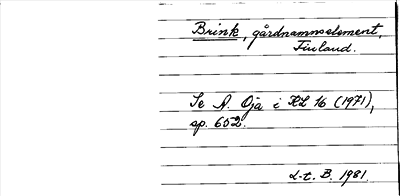 Brink, gårdnamnselement,
Finland.
Se A. Oja i KL 16 (1971),
sp. 652.
L-t. B. 1981